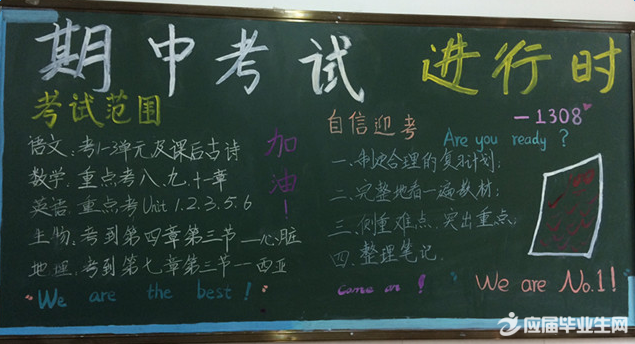 期中考试 进行时
考试范围
语文:考1-3单元及课后古诗
数学:重点考八、九、十一章
英语:重点考Unit 1.2.3.5.6
生物:考到第四章第三节—心脏
地理:考到第七章第三节—西亚
"We are the best!"
加油!
自信迎考
—1308
Are you ready?
一、制定合理的复习计划;
二、完整地看一遍教材;
三、侧重难点,突出重点;
四、整理笔记.
come on!
"We are No.1!"
应届毕业生网